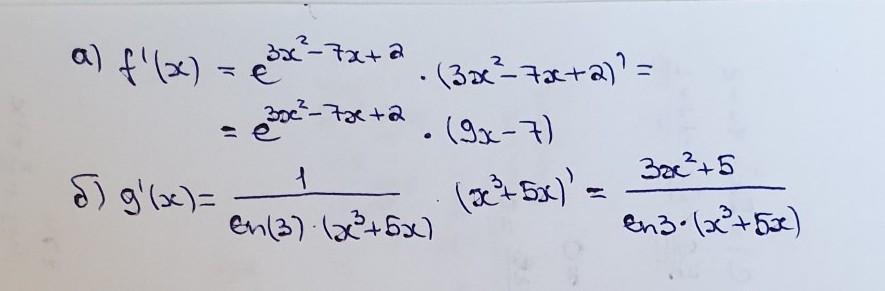 а) f'(x) = e^{3x²-7x+2} · (3x²-7x+2)' =
= e^{3x²-7x+2} · (9x-7)
б) g'(x) = \frac{1}{ln(3)·(x³+5x)} · (x³+5x)' = \frac{3x²+5}{ln3·(x³+5x)}